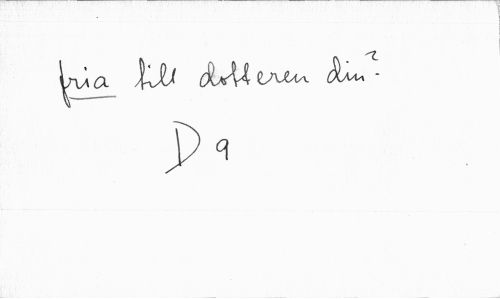 fria till dotteren din?
D 9